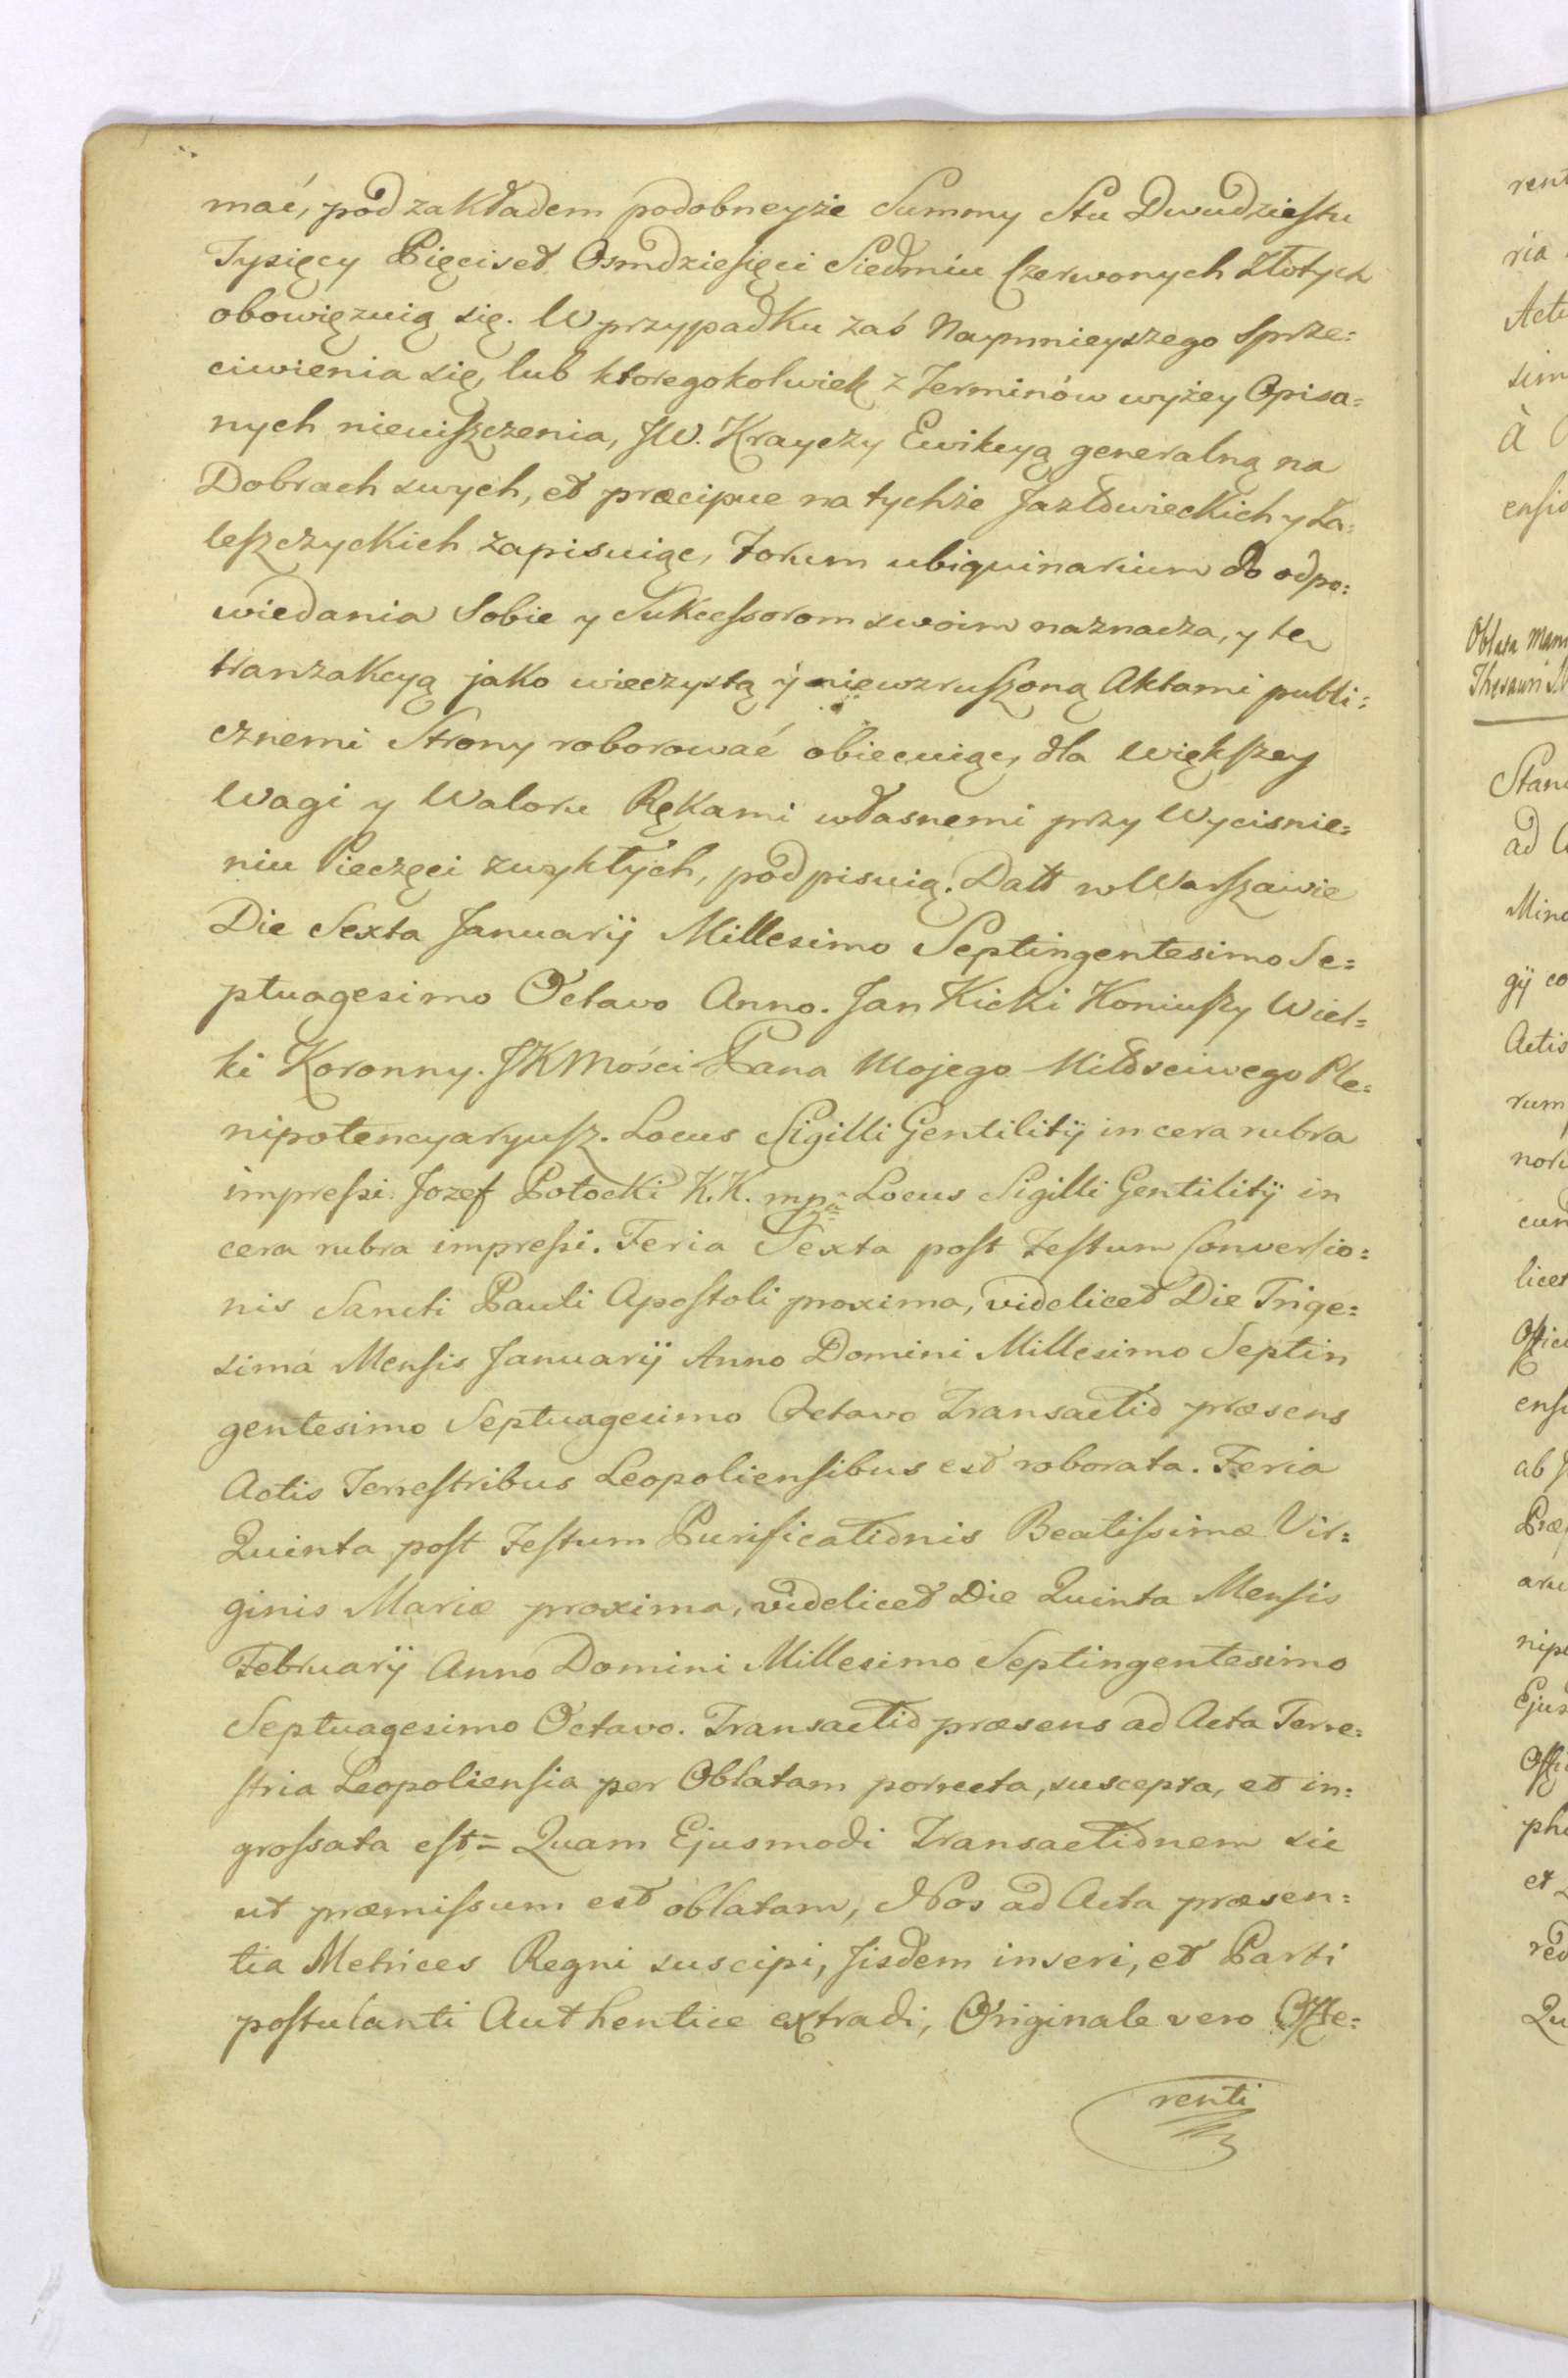 mać, pod zakładem podobneyże Summy Stu Dwudziestu
Tysięcy Pięciset Osmdziesięci Siedmiu Czerwonych Złotych
obowięzuią się. W przypadku zaś Naymnieyszego Sprze=
ciwienia się, lub ktoregokolwiek z Terminów wyżey Opisa=
nych nieuiszczenia, JW. Krayczy Ewikcyą generalną na
Dobrach swych, et præcipue na tychże Jazłowieckich y Za=
leszczyckich zapisuiąc, Forum ubiquinarium do odpo=
wiedania Sobie y Sukcessorom swoim naznacza, y tę
tranzakcyą jako wieczystą y niewzruszoną Aktami publi=
cznemi Strony roborować obiecuiąc, dla większey
Wagi y Waloru Rękami własnemi przy Wycisnie=
niu Pieczęci zwykłych, podpisuią. Datt w Warszawie
Die Sexta Januarij Millesimo Septingentesimo Se=
ptuagesimo Octavo Anno. Jan Kicki Koniuszy Wiel=
ki Koronny. JKMości Pana Mojego Miłościwego Ple=
nipotencyaryusz. Locus Sigilli Gentilitij in cera rubra
impressi. Jozef Potocki K.K. mpa Locus Sigilli Gentilitij in
cera rubra impressi. Feria Sexta post Festum Conversio=
nis Sancti Pauli Apostoli proxima, videlicet Die Trige=
sima Mensis Januarij Anno Domini Millesimo Septin
gentesimo Septuagesimo Octavo Transactio præsens
Actis Terrestribus Leopoliensibus est roborata. Feria
Quinta post Festum Purificationis Beatissimæ Vir=
ginis Mariæ proxima, videlicet Die Quinta Mensis
Februarij Anno Domini Millesimo Septingentesimo
Septuagesimo Octavo. Transactio præsens ad Acta Terre=
stria Leopoliensia per Oblatam porrecta, suscepta, et in=
grossata est = Quam Ejusmodi Transactionem sic
ut præmissum est oblatam, Nos ad Acta præsen=
tia Metrices Regni suscipi, Jisdem inseri, et Parti
postulanti Authentice extradi, Originale vero Offe=
renti